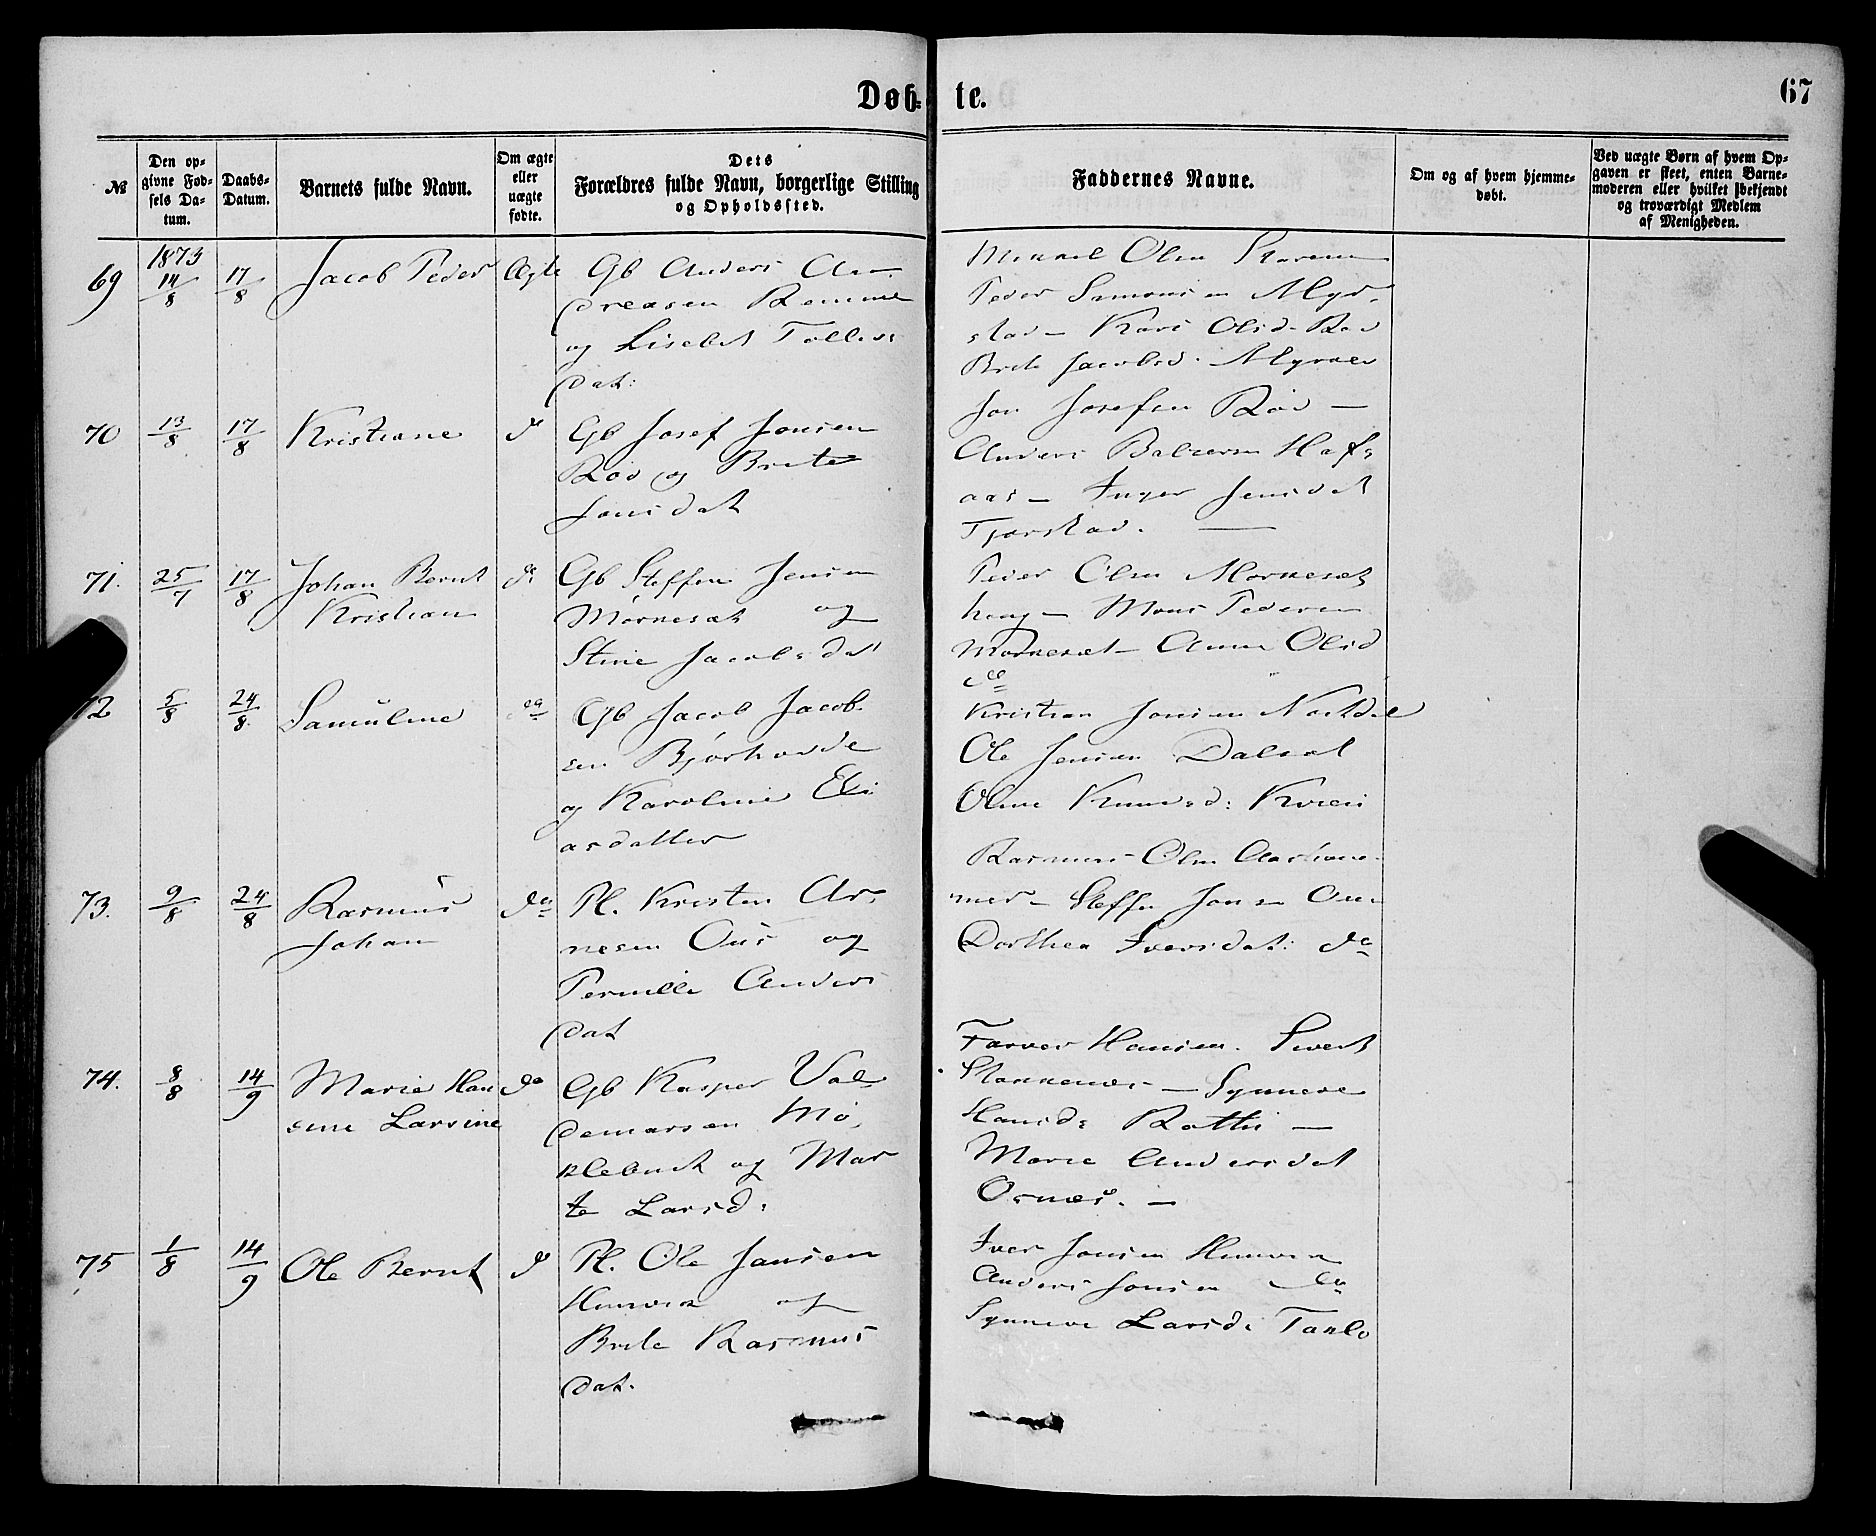 Døb-
te.
67
№
Den op-
givne Fød-
sels Da-
tum.
Daabs-
Datum.
Barnets fulde Navn.
Om ægte
eller
uægte
fødte.
Dets
Forældres fulde Navn, borgerlige Stilling
og Opholdssted.
Faddernes Navne.
Om og af hvem hjemme-
døbt.
Ved uægte Børn af hvem Op-
gaven er skeet, enten Barne-
moderen eller hvilket bekjendt
og troværdigt Medlem
af Menigheden.
1873
69
14/8
17/8
Jacob Peder
Ægte
Gb Anders An-
dreasen Remme
og Lisabet Tolleis
dat:
Mikael Olsn
Peder Samonsen Myr-
stad - Kari Olsd. Rød
Brite Jacobsd.
70
13/8
17/8
Kristiane
do
Gb Josef Jonsen
Rød og Brite
Jonsdat
Jon Josefsen Rød -
Anders Balzersn Hafs
aas - Inger Jensdat
Tjorstad.
71.
25/7
17/8
Johan Bernt
Kristian
do
Gb Steffen Jensen
Mørkesæt og
Stine Jacobsdat
Peder Olsn Morkesæt
haug - Mons Pedersen
Mørkesæt - Anne Olsd
do
72
5/8
24/8
Samuline
do
Gb Jacob Jacob-
sen Bjørhovde
og Karoline Eli
asdatter
Kristian Jonsen
Ole Jensen Dalsæt
Oline Knudsd:
73.
9/8
24/8
Rasmus
Johan
do
Pl. Kristen Ar-
nesen Ous og
Pernille Anders
dat
Rasmus Olsn
mer - Steffen Jonsen
Dorthea Iversdat: do
74.
8/8
14/9
Marie Han
sine Larsine
do
Gb Kasper Val-
demarsen Mø-
klebust og Mar
te Larsd:
Farver Hansen. Sivert
Stokkenæs - Synneve
Hansd:
Marie Andersdat
Osnæs. -
75
1/8
14/9
Ole Bernt
do
Pl. Ole Jansen
Humvik og
Brite Rasmus
dat.
Iver Jonsen Humvik
Anders Jonsen do
Synneve Larsd: